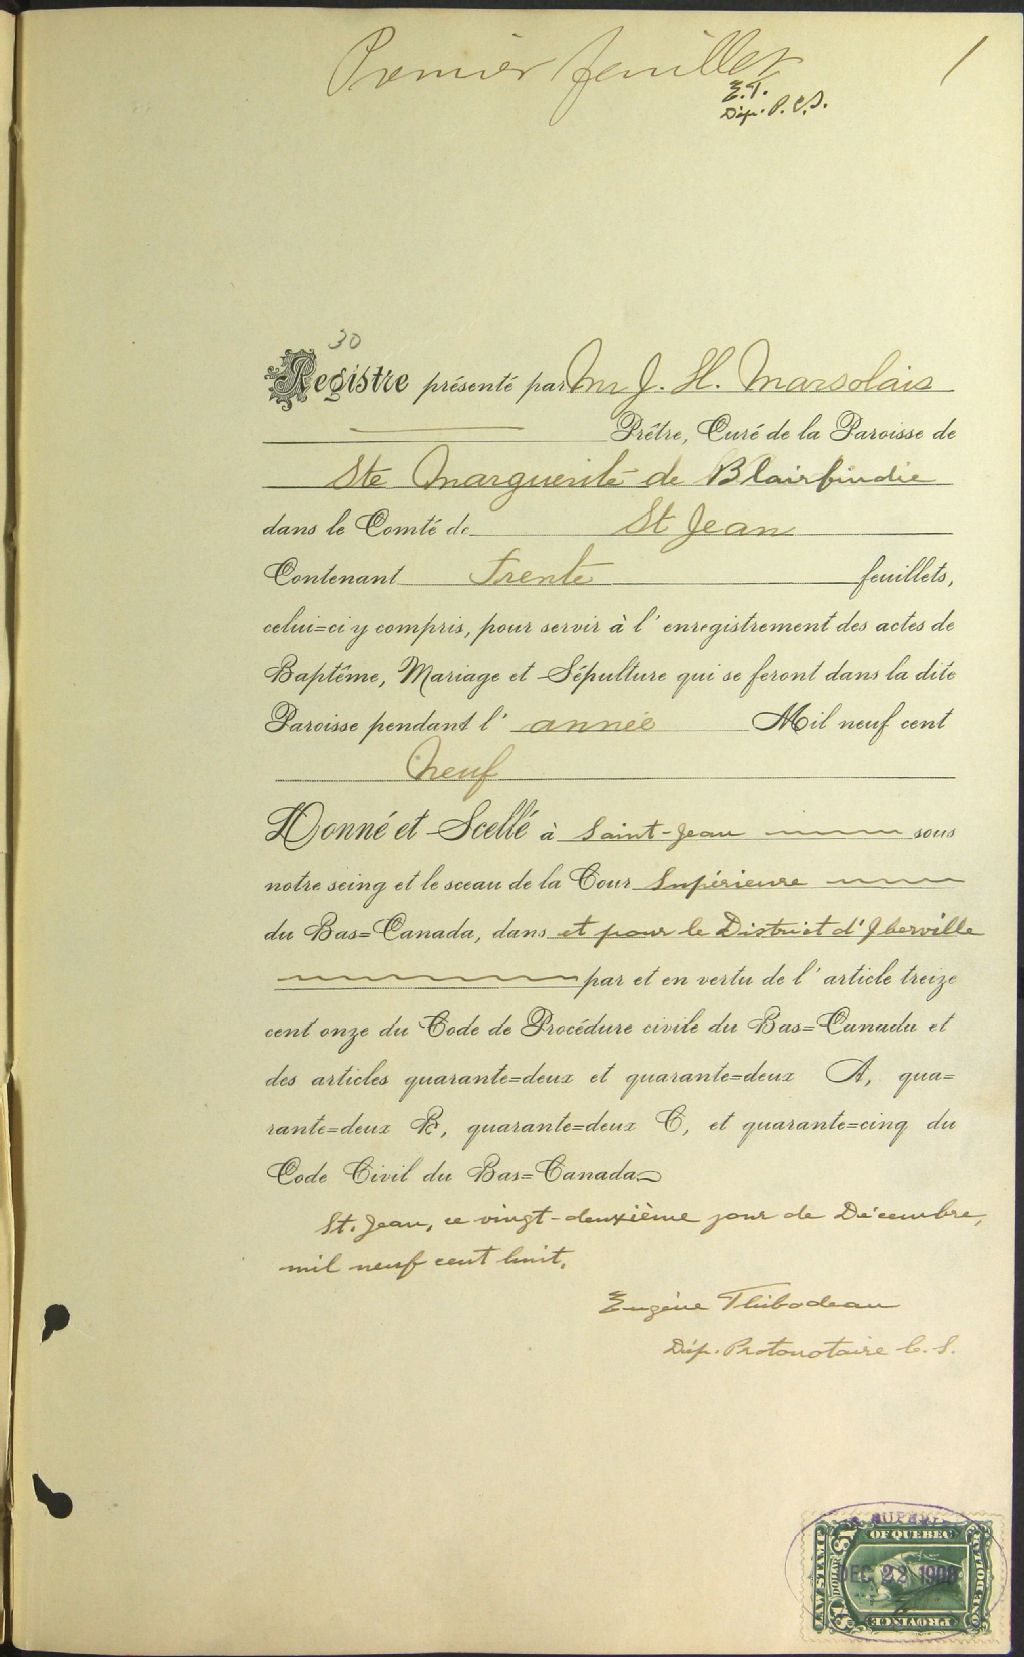 Premier feuillet
1
E.T.
Dép. P.C.S.
30
Registre présenté par Mr J. H. Marsolais
Prêtre, Curé de la Paroisse de
Ste Marguerite de Blairfindie
dans le Comté de St Jean
Contenant Trente feuillets,
celui=ci y compris, pour servir à l'enregistrement des actes de
Baptême, Mariage et Sépulture qui se feront dans la dite
Paroisse pendant l'année Mil neuf cent
Neuf
Donné et Scellé à Saint-Jean sous
notre seing et le sceau de la Cour Supérieure
du Bas=Canada, dans et pour le District d'Iberville
par et en vertu de l'article treize
cent onze du Code de Procédure civile du Bas=Canada et
des articles quarante=deux et quarante=deux A, qua=
rante=deux B, quarante=deux C, et quarante=cinq du
Code Civil du Bas=Canada
St. Jean, ce vingt-deuxième jour de Décembre,
mil neuf cent huit.
Eugène Thibodeau
Dép. Protonotaire C. S.
OF QUEBEC
LAW STAMP
DEC 22 1908
ONE DOLLAR
PROVINCE